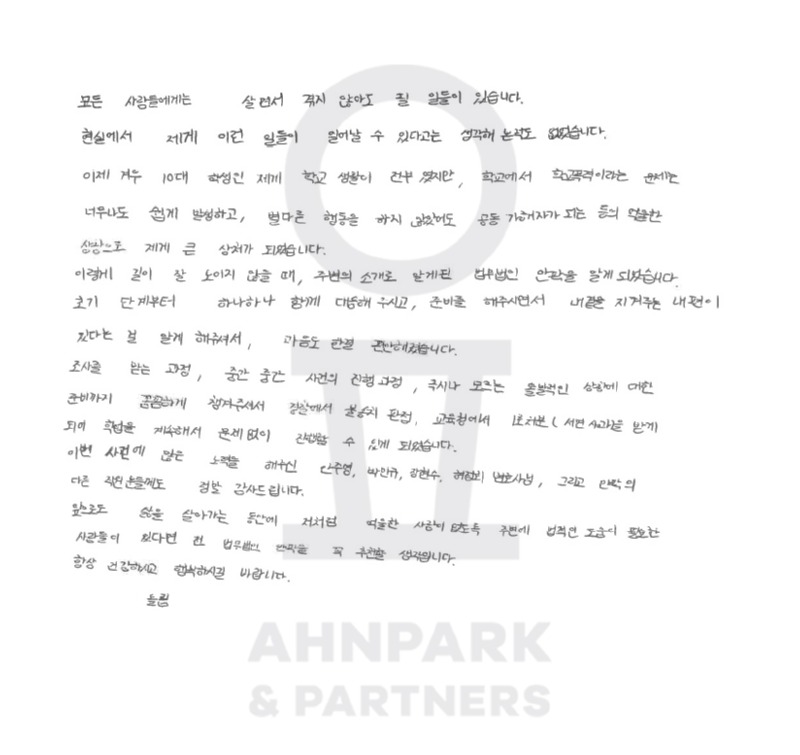 모든 사람들에게는 살면서 겪지 않아도 될 일들이 있습니다.
현실에서 제게 이런 일들이 일어날 수 있다고는 생각해 본적도 없었습니다.
이제 겨우 10대 학생인 제게 학교 생활이 전부 였지만, 학교에서 학교폭력이라는 문제는
너무나도 쉽게 발생하고, 별다른 행동을 하지 않았어도 공동 가해자가 되는 등의 억울한
제게 큰 상처가 되었습니다.
이렇게 길이 잘 보이지 않을 때, 주변의 소개로 알게된 법무법인 안팍을 알게 되었습니다.
초기 단계부터 하나하나 함께 대응해 주시고, 준비를 해주시면서 내 곁을 지켜주는 내 편이
있다는 걸 알게 해주셔서, 마음도 한결 편안해졌습니다.
조사를 받는 과정, 중간 중간 사건의 진행 과정, 혹시나 모르는 돌발적인 상황에 대한
준비까지 꼼꼼하게 챙겨주셔서 경찰에서 불송치 판정, 교육청에서 1호처분(서면사과)을 받게
되어 학업을 계속해서 문제 없이 진행할 수 있게 되었습니다.
이번 사건에 많은 노력을 해주신 안주영, 박민규, 강현수, 변호사님, 그리고 안팍의
다른 직원분들께도 정말 감사드립니다.
앞으로도 삶을 살아가는 동안에 저처럼 억울한 사람이 없도록 주변에 법적인 도움이 필요한
사람들이 있다면 전 법무법인 안팍을 꼭 추천할 생각입니다.
항상 건강하시고 행복하시길 바랍니다.
드림
AHNPARK
& PARTNERS